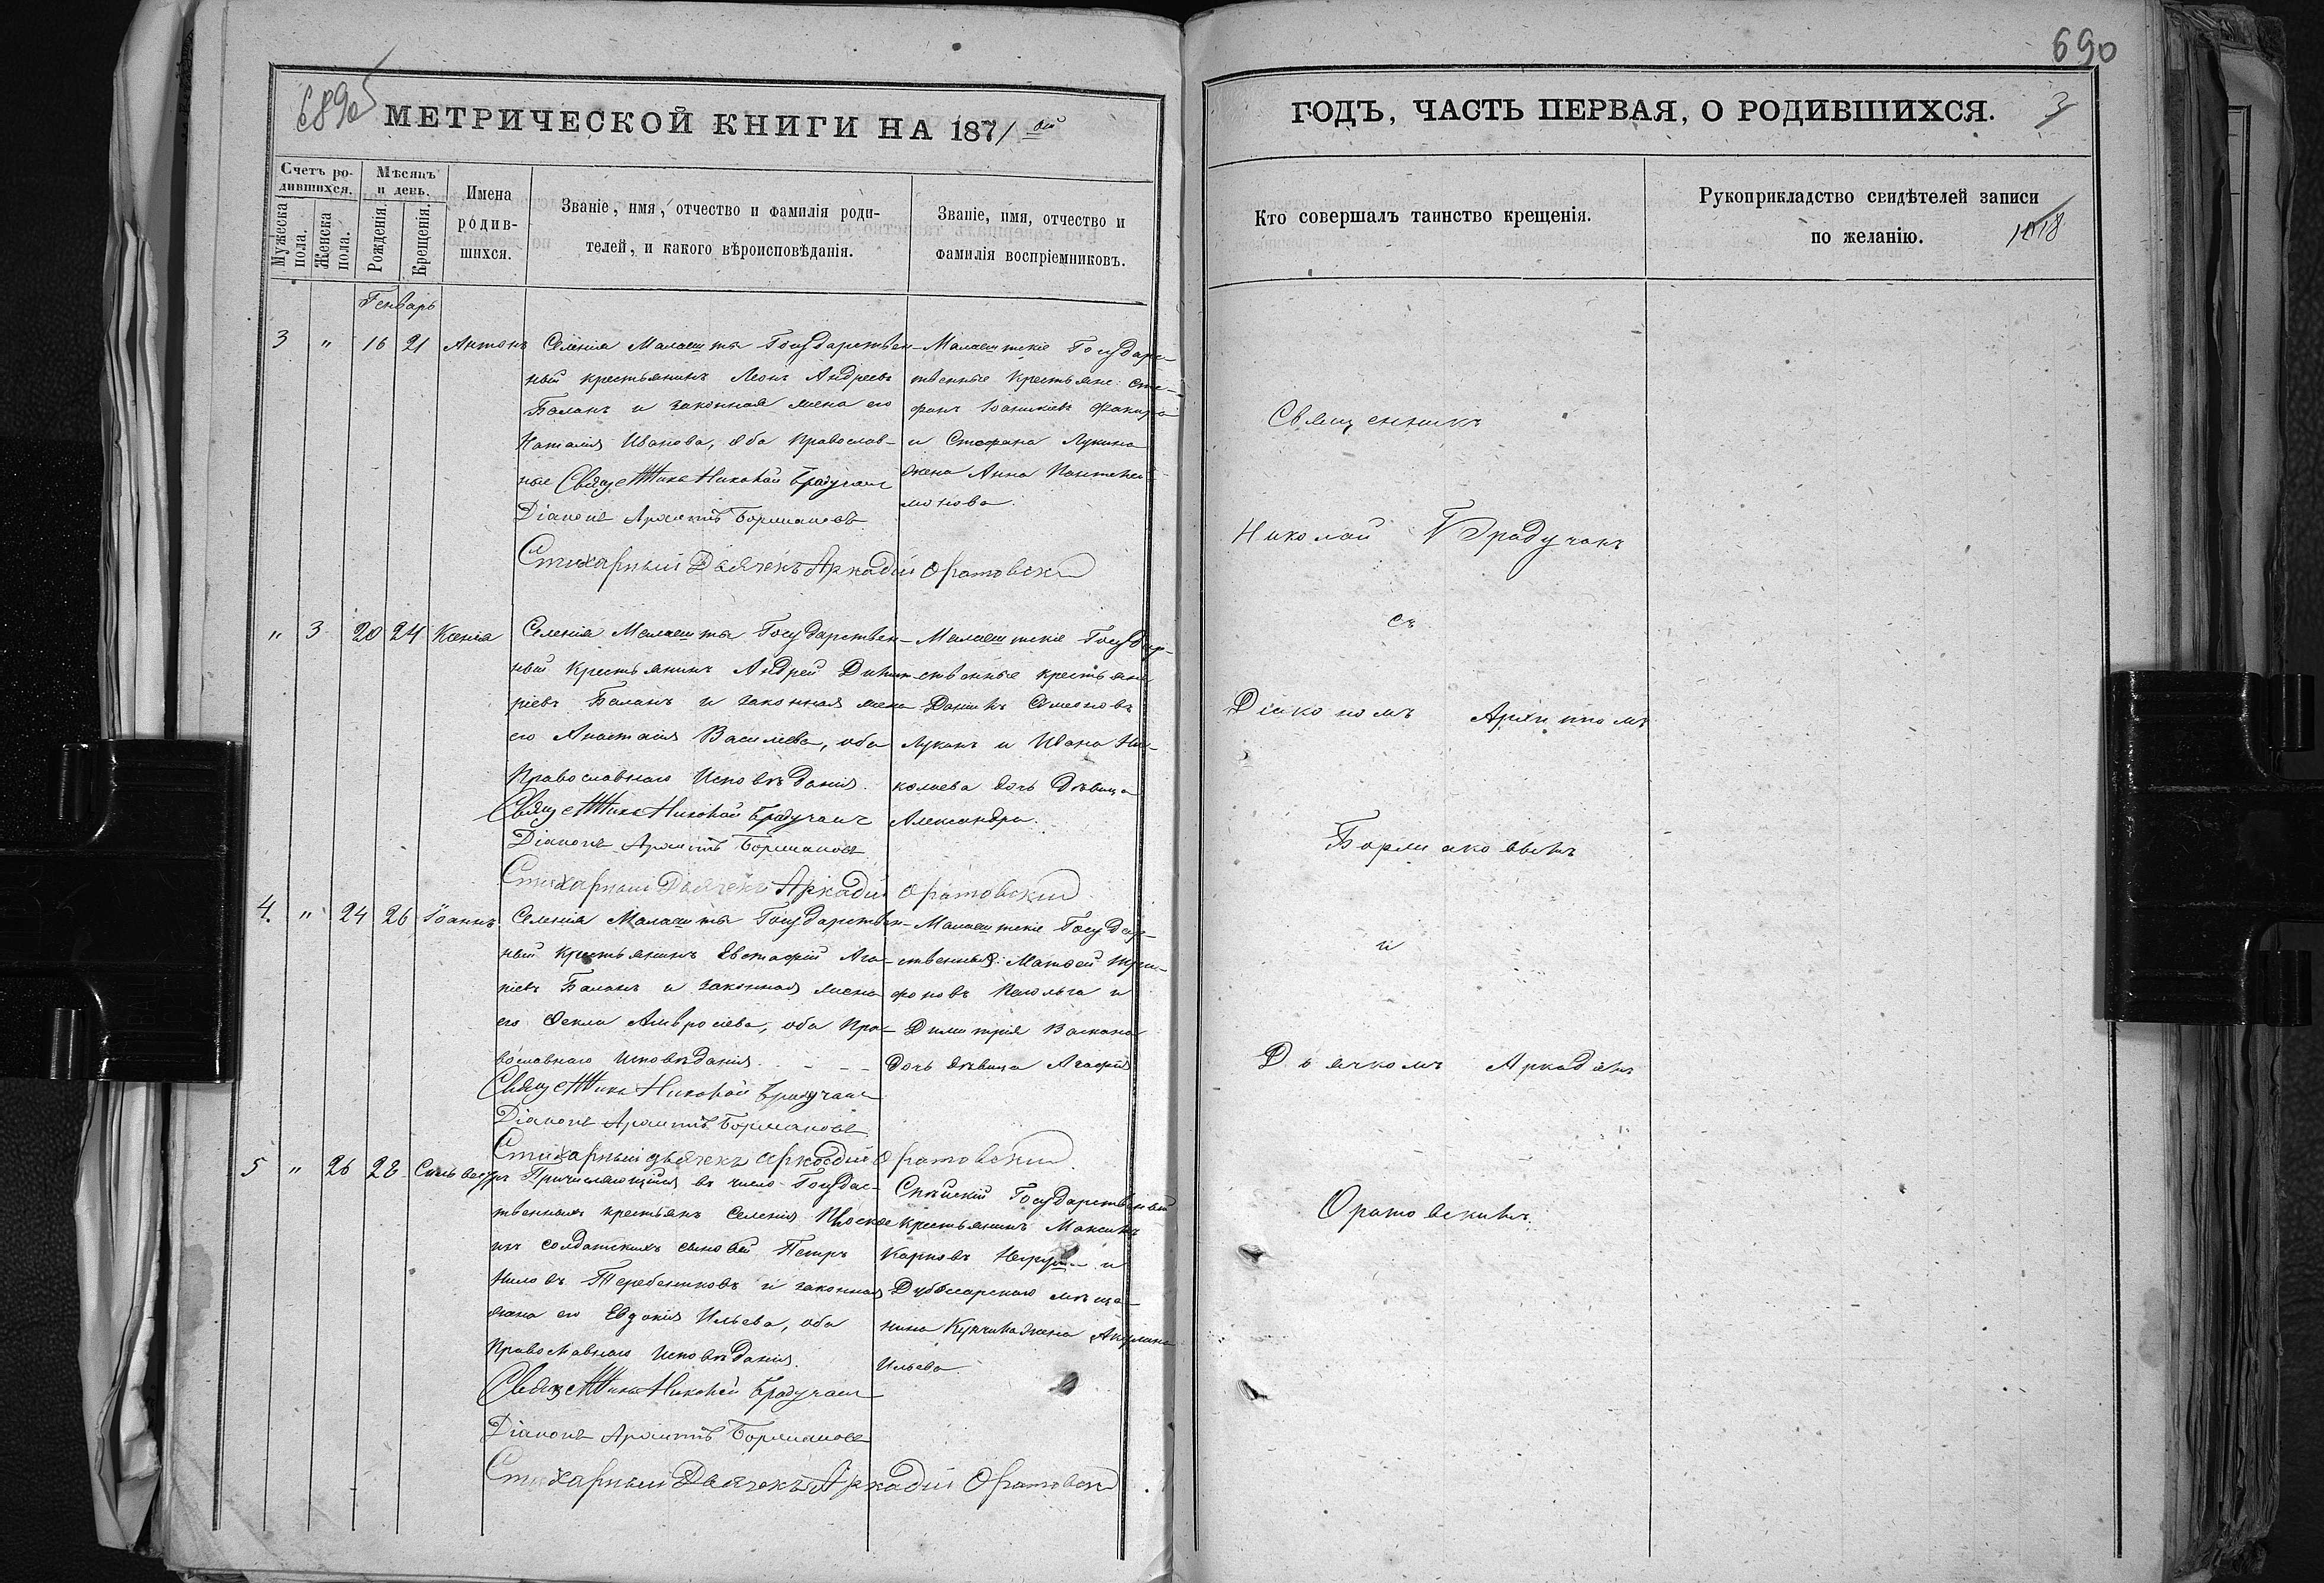 690
МЕТРИЧЕСКОЙ КНИГИ НА 1871 ой
ГОДЪ, ЧАСТЬ ПЕРВАЯ, О РОДИВШИХСЯ. 3
Счетъ родившихся.
Мужеска пола.
Женска пола.
Мѣсяцъ и день.
Рожденія.
Крещенія.
Имена
родив-
шихся.
Званіе, имя, отчество и фамилія роди-
телей, и какого вѣроисповѣданія.
Званіе, имя, отчество и
фамилія воспріемниковъ.
Кто совершалъ таинство крещенія.
Рукоприкладство свидѣтелей записи
по желанію.
Генварь
3 " 16 21 Антонъ
Селенія Малаешты Государствен-
ный крестьянинъ Леонъ Андреевъ
Баланъ и законная жена его
Наталія Иванова, оба православ-
ные Священникъ Николай Брадучанъ
Діаконъ Архиппъ Бормаковъ
Стихарный Дьячекъ Аркадій Оратовскій
Малаештскіе Государс-
твенные крестьяне: Сте-
фанъ Іоанникіевъ
и Стефана Лукина
жена Анна Пантелей-
монова.
" 3 20 24 Ксенія
Селенія Малаешты Государствен-
ный крестьянинъ Андрей Димит-
ріевъ Баланъ и законная жена
его Анастасія Василіева, оба
Православнаго Исповѣданія.
Священникъ Николай Брадучанъ
Діаконъ Архиппъ Бормаковъ
Стихарный Дьячекъ Аркадій Оратовскій
Малаештскіе Государ-
ственные крестьяне
Даніилъ Симеоновъ
Луканъ и Ивана Ни-
колаева дочь дѣвица
Александра.
4. " 24 26 Іоаннъ
Селенія Малаешты Государствен-
ный крестьянинъ Евстафій Ага-
піевъ Баланъ и законная жена
его Ѳекла Амвросіева, оба пра-
вославнаго исповѣданія.
Священникъ Николай Брадучанъ
Діаконъ Архиппъ Бормаковъ
Стихарный дьячекъ Аркадій Оратовскій
Малаештскіе Государ-
ственные: Матѳей Три-
фоновъ и
Димитрія Васкана
дочь дѣвица Агафія
5 " 26 28 Сильвестръ
Причисляющійся въ число Государс-
твенныхъ крестьянъ Селенія
изъ солдатскихъ сыновей Петръ
Ниловъ Теребениковъ и законная
жена его Евдокія Ильева, оба
Православнаго Исповѣданія.
Священникъ Николай Брадучанъ
Діаконъ Архиппъ Бормаковъ
Стихарный Дьячекъ Аркадій Оратовскій
Спѣйскій Государственный
крестьянинъ Максимъ
Карповъ и
Дубоссарскаго мѣща-
нина жена Акулина
Ильева
Священникъ
Николай Брадучанъ
съ
Діакономъ Архиппомъ
Бормаковымъ
и
Дьячкомъ Аркадіемъ
Оратовскимъ.